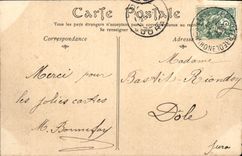 Carte Postale
Tous les pays étrangers n'acceptent pas la correspondance au recto
Se renseigner
Correspondance
Adresse
Merci pour
les jolies cartes
M. Bonnefoy
Madame
Bastit-Riondez
Dôle
Jura